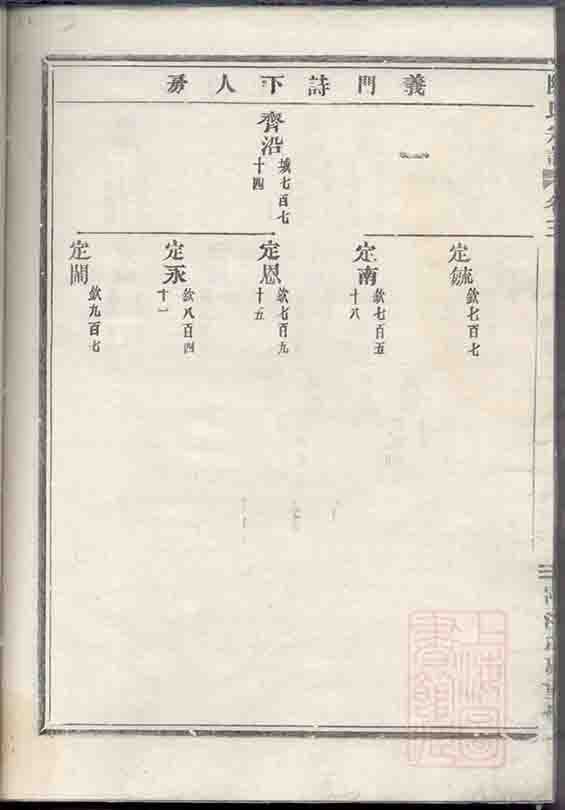 義門詩下人房
齊沿
城七百七
十四
定毓
欽七百七
定南
欽七百五
十八
定恩
欽七百九
十五
定永
欽八百四
十一
定閙
欽九百七
上海圖
書館藏